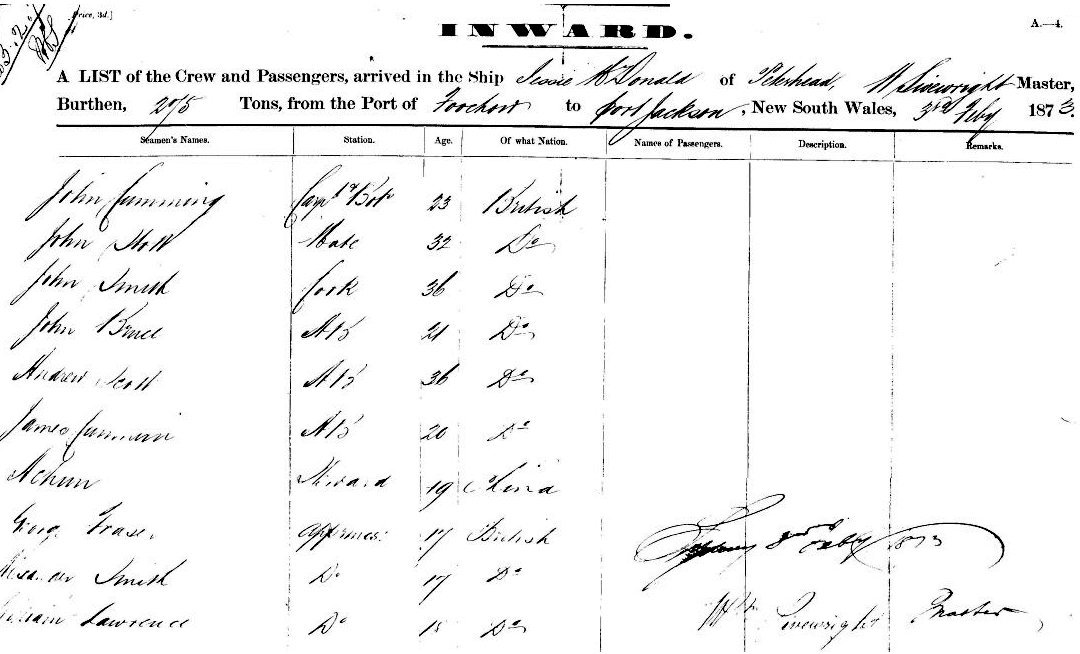 [Price, 3d.]
INWARD.
A.—4.
A LIST of the Crew and Passengers, arrived in the Ship Jessie McDonald of Peterhead, W Sivewright Master,
Burthen, 275 Tons, from the Port of Foochow to Port Jackson, New South Wales, 3rd Feby 1873.
Seamen's Names. Station. Age. Of what Nation. Names of Passengers. Description. Remarks.
John Cumming 23 British
John Stott Mate 32 Do
John Smith Cook 36 Do
John Bruce AB 21 Do
Andrew Scott AB 36 Do
James Cummin AB 20 Do
Achun Steward 19 China
George Fraser Apprince 17 British
Sydney 3rd Feby 1873
Alexander Smith Do 17 Do
William Lawrence Do 18 Do
Wm Sivewright Master